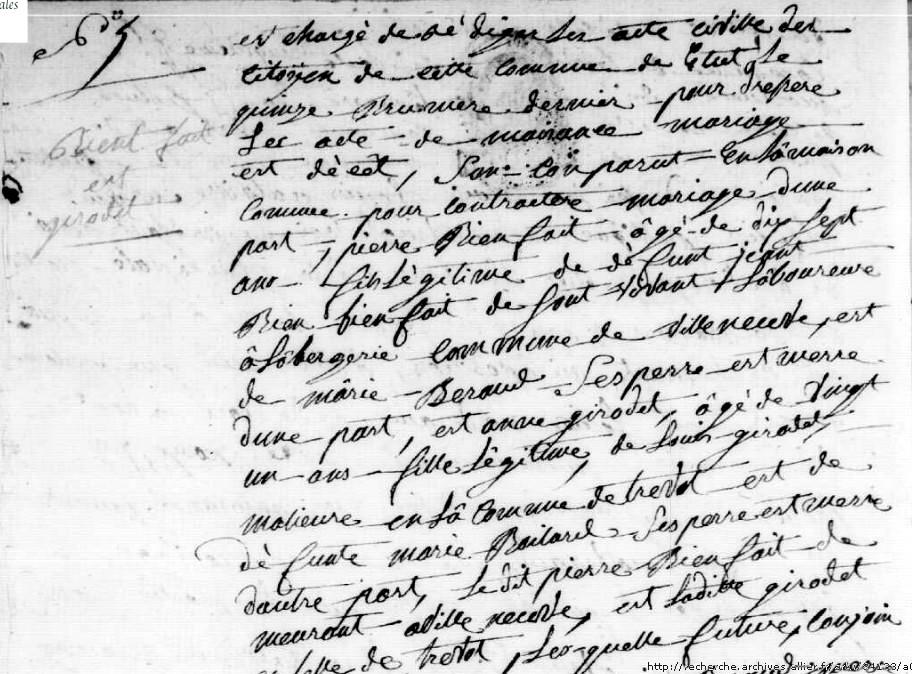 ales
N°5
est chargé de rédiger les acte civille des
citoÿen de cette commune de Etut Le
quinze Brumere dernier pour
Les acte de mariage
est dècét, Son conparut En lâ maison
Commune pour contractere mariage dune
part, pierre Bienfait âgé de dix Sept
ans fils Légitime de dèfunt jeant
Bien bienfait de Sont vivant Lâboureure
â Lôbergerie Commune de Villeneuve, est
de mârie Beraud Ses perre est merre
dune part, est anne girodet, âgé de Vingt
un ans fille Légitime, de Louis girodet,
en Lâ Commune de trevol est de
dèfunte marie Ses perre est merre
dautre part, Ledit pierre Bienfait de
meurant a Villeneuve, est Laditte girodet
de trevol, Les quelle future, Conjoin
Bient fait
est
girodet